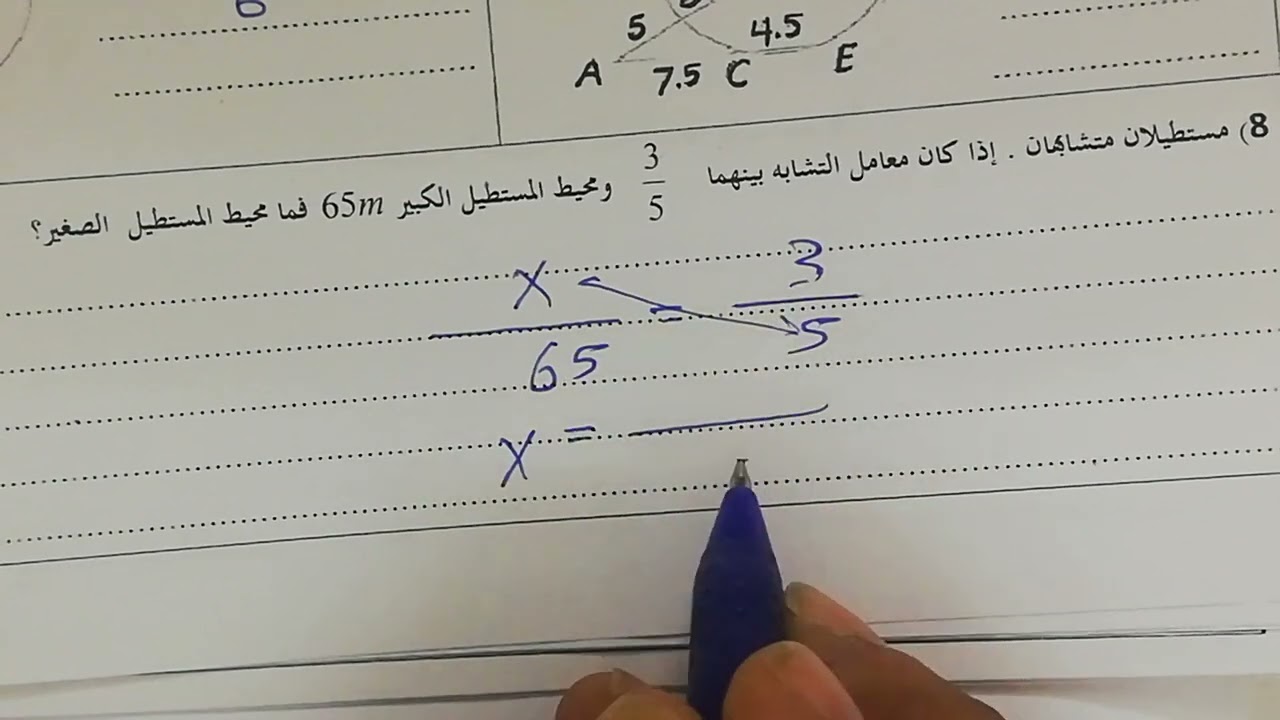 5
4.5
A
7.5
C
E
8) مستطيلان متشابهان . إذا كان معامل التشابه بينهما 3/5 ومحيط المستطيل الكبير 65m فما محيط المستطيل الصغير؟
x/65 = 3/5
x =